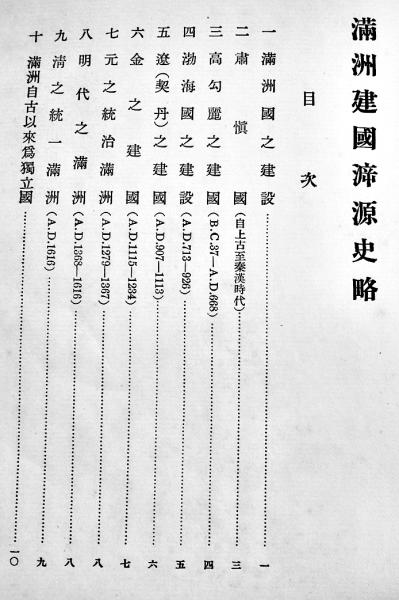 滿洲建國溯源史略
目次
一 滿洲國之建設……一
二 肅愼國(自上古至秦漢時代)……三
三 高勾麗之建國(B.C.37—A.D.668)……四
四 渤海國之建設(A.D.713—926)……五
五 遼(契丹)之建國(A.D.907—1113)……六
六 金之建國(A.D.1115—1234)……七
七 元之統治滿洲(A.D.1279—1367)……八
八 明代之滿洲(A.D.1368—1616)……八
九 淸之統一滿洲(A.D.1616)……九
十 滿洲自古以來爲獨立國……一〇